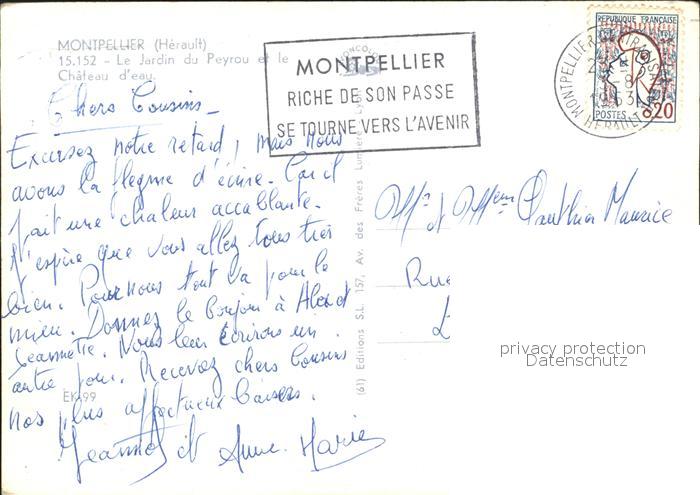 MONTPELLIER (Hérault)
15.152 - Le Jardin du Peyrou et le
Château d'eau.
MONTPELLIER
RICHE DE SON PASSE
SE TOURNE VERS L'AVENIR
REPUBLIQUE FRANÇAISE
POSTES 0,20
MONTPELLIER
1963
HERAULT
Chers Cousins_
Excusez notre retard, mais nous
avons la flegme d'écrire. Car il
fait une chaleur accablante.
J'espère que vous allez tous très
bien. Pour nous tout va pour le
mieu. Donnez le bonjour à Alex et
Jeannette. Nous leur écrirons un
autre jour. Recevez chers Cousins
nos plus affectueux baisers.
Jeannot et Anne-Marie
EK 99
(61) Editions S.L. 157, Av. des Frères Lumière - Lyon
Mr et Mme Maurice
Rue
privacy protection
Datenschutz